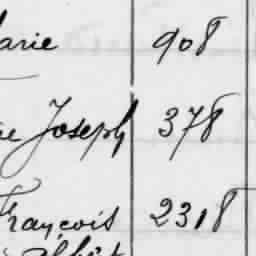 arie 908
e Joseph 378
François 2318
Albert